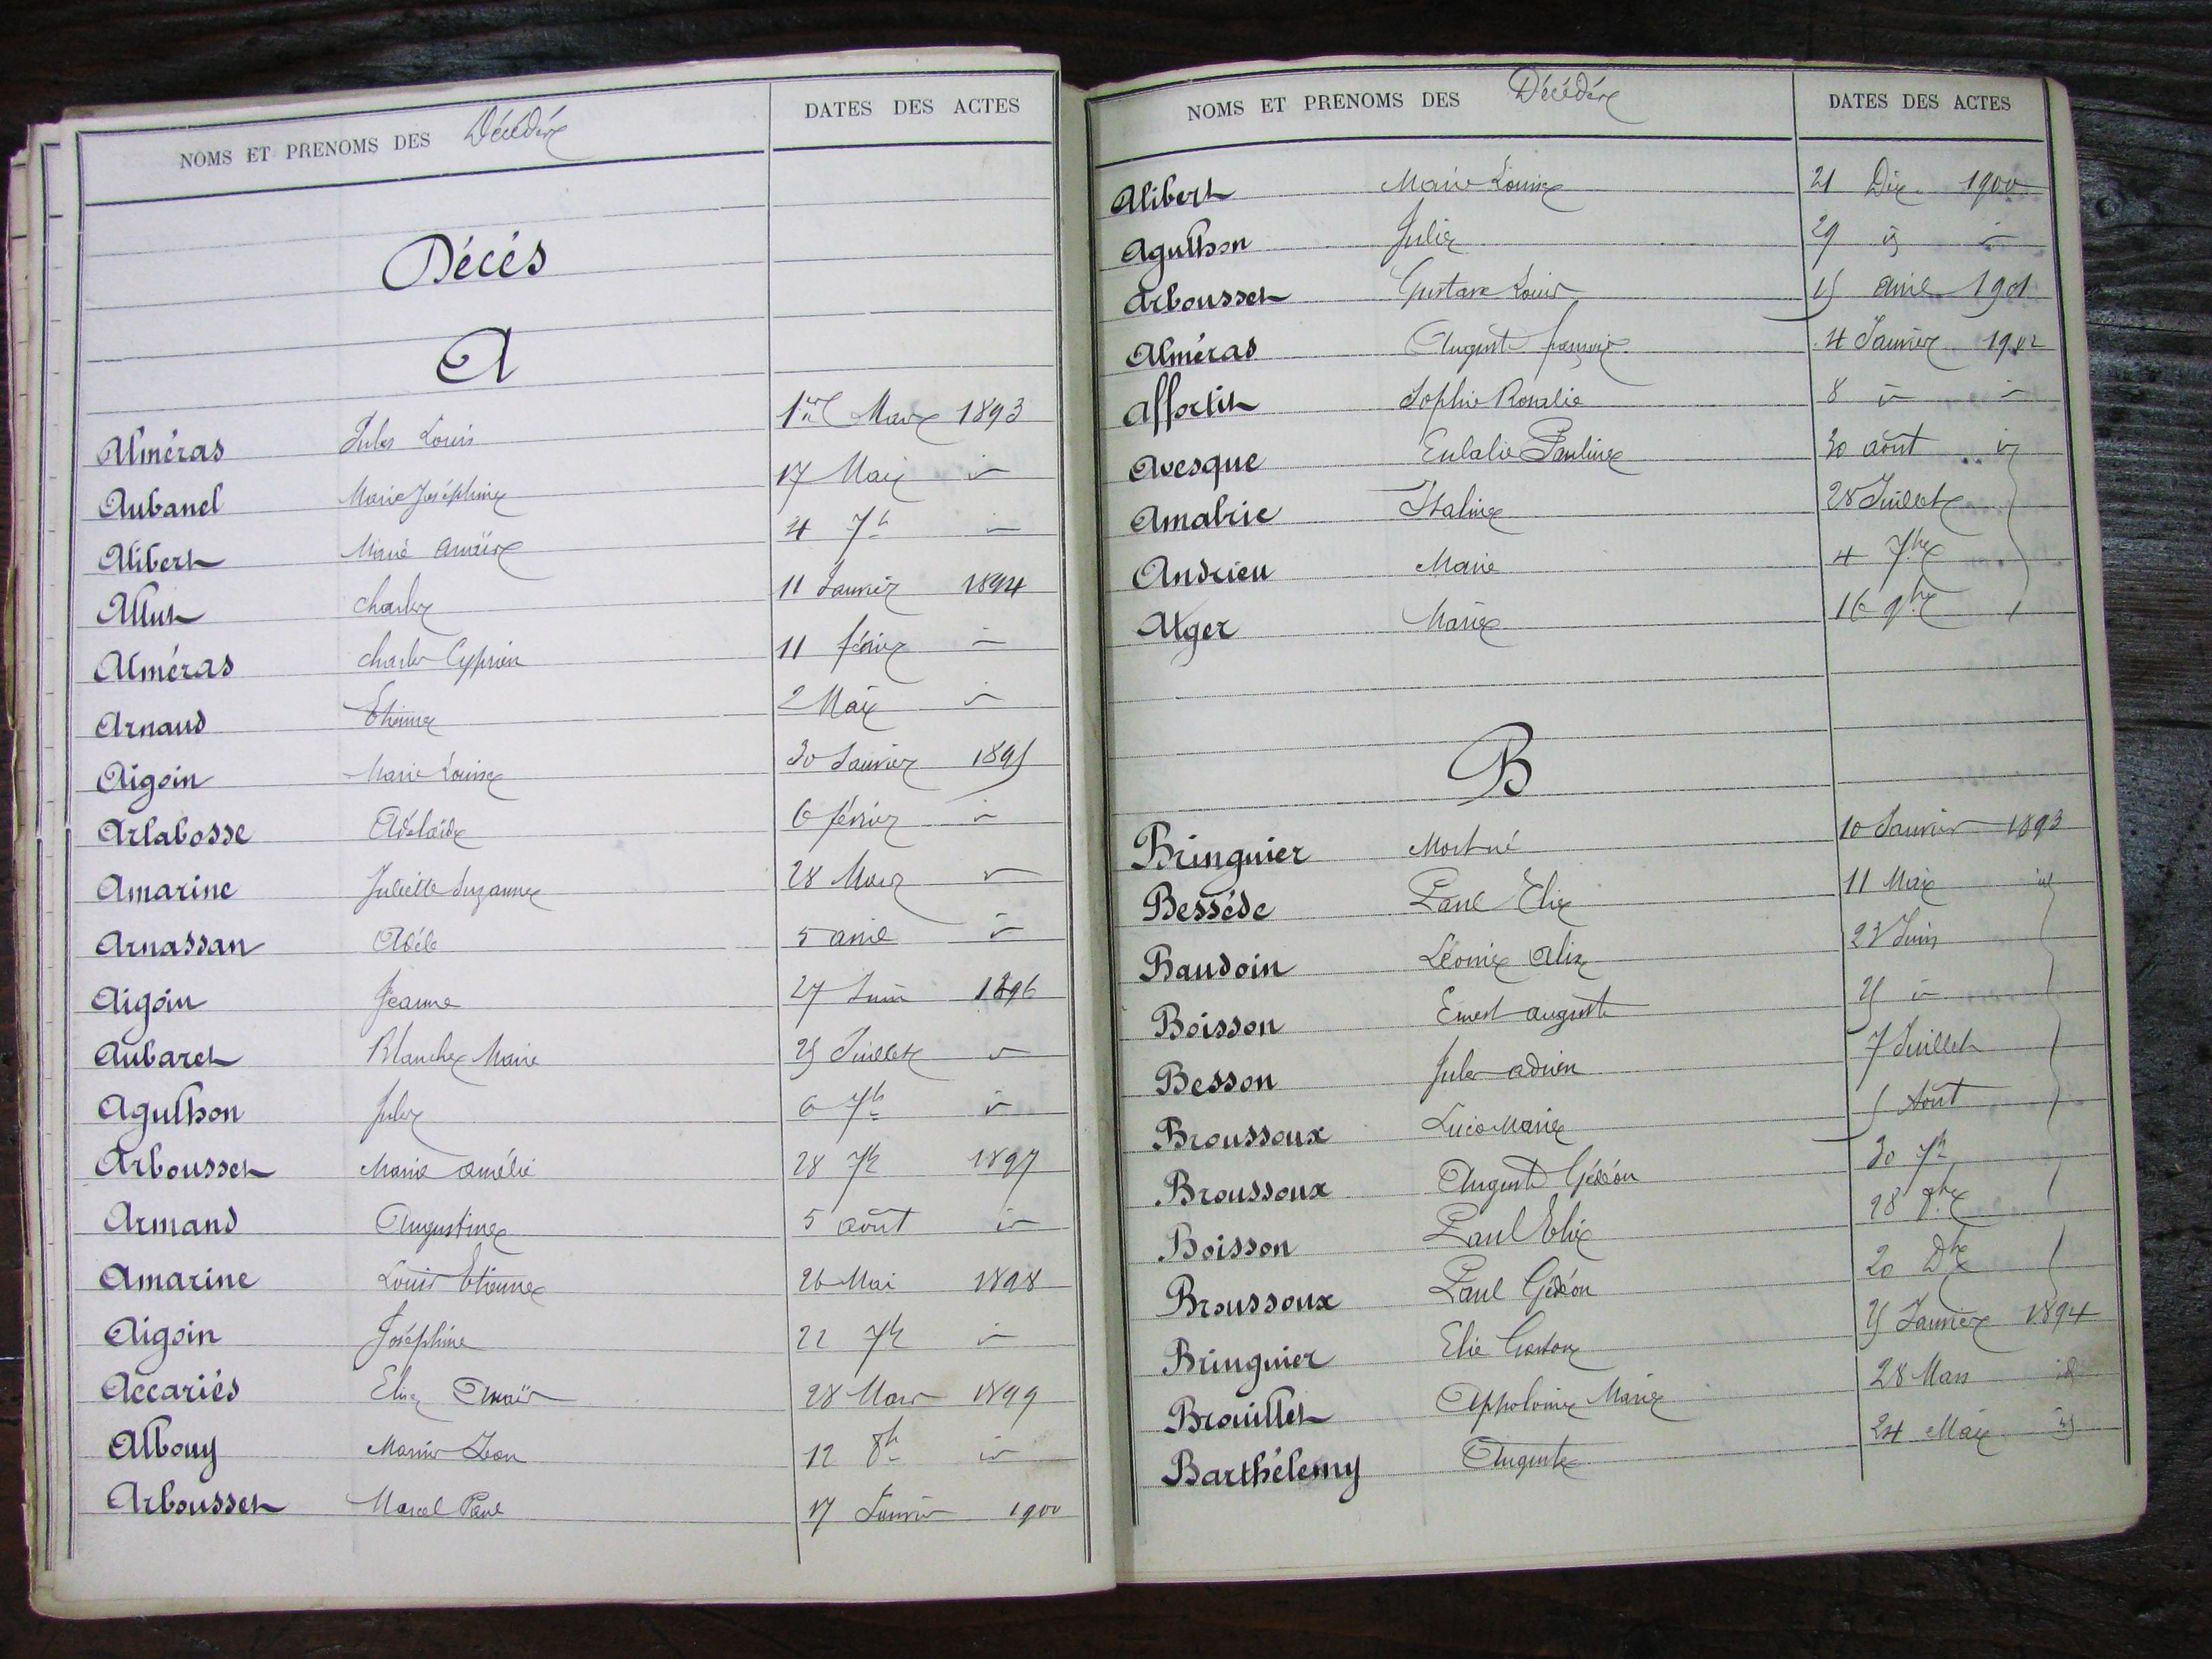 NOMS ET PRENOMS DES Décédés DATES DES ACTES
Décés
A
Alméras Jules Louis 1er Mars 1893
Aubanel Marie Joséphine 17 Mai id
Alibert Marie Anaïs 4 7b id
Allut Charles 11 Janvier 1894
Alméras Charles Cyprien 11 février id
Arnaud Etienne 2 Mai id
Aigoin Marie Louise 30 Janvier 1895
Arlabosse Adélaïde 6 février id
Amarine Juliette Suzanne 28 Mars id
Arnassan Adèle 5 avril id
Aigoin Jeanne 27 Juin 1896
Aubaret Blanche Marie 25 Juillet id
Agulhon Jules 6 7b id
Arbousset Marie Amélie 28 7b 1897
Armand Augustine 5 août id
Amarine Louis Etienne 26 Mai 1898
Aigoin Joséphine 22 7b id
Accariés Elisa Anaïs 28 Mars 1899
Albouy Marius Léon 12 8b id
Arbousset Marcel Paul 17 Janvier 1900
NOMS ET PRENOMS DES Décédés DATES DES ACTES
Alibert Marie Louise 21 Dix 1900
Agulhon Julie 29 id id
Arbousset Gustave Louis 15 avril 1901
Alméras Auguste françois 4 Janvier 1902
Affortit Sophie Rosalie 8 id id
Avesque Eulalie Pauline 30 août id
Amalric Italine 28 Juillet
Andrieu Marie 4 7bre
Alger Marie 16 9bre
B
Bringuier Mort né 10 Janvier 1893
Besséde Paul Elie 11 Mai id
Baudoin Léonie Alix 23 Juin
Boisson Ernest Auguste 25 id
Besson Jules Adrien 7 Juillet
Broussoux Lucie Marie 5 Août
Broussoux Auguste Gédéon 30 7b
Boisson Paul Elie 28 9bre
Broussoux Paul Gédéon 20 Dbre
Bringuier Elie Gaston 25 Janvier 1894
Brouillet Appolonie Marie 28 Mars id
Barthélemy Auguste 24 Mai id